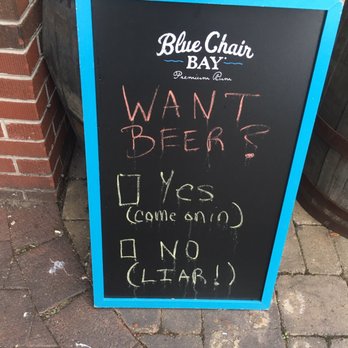 Blue Chair
BAY
Premium Rum
WANT
BEER?
Yes
(come on in)
NO
(LIAR!)